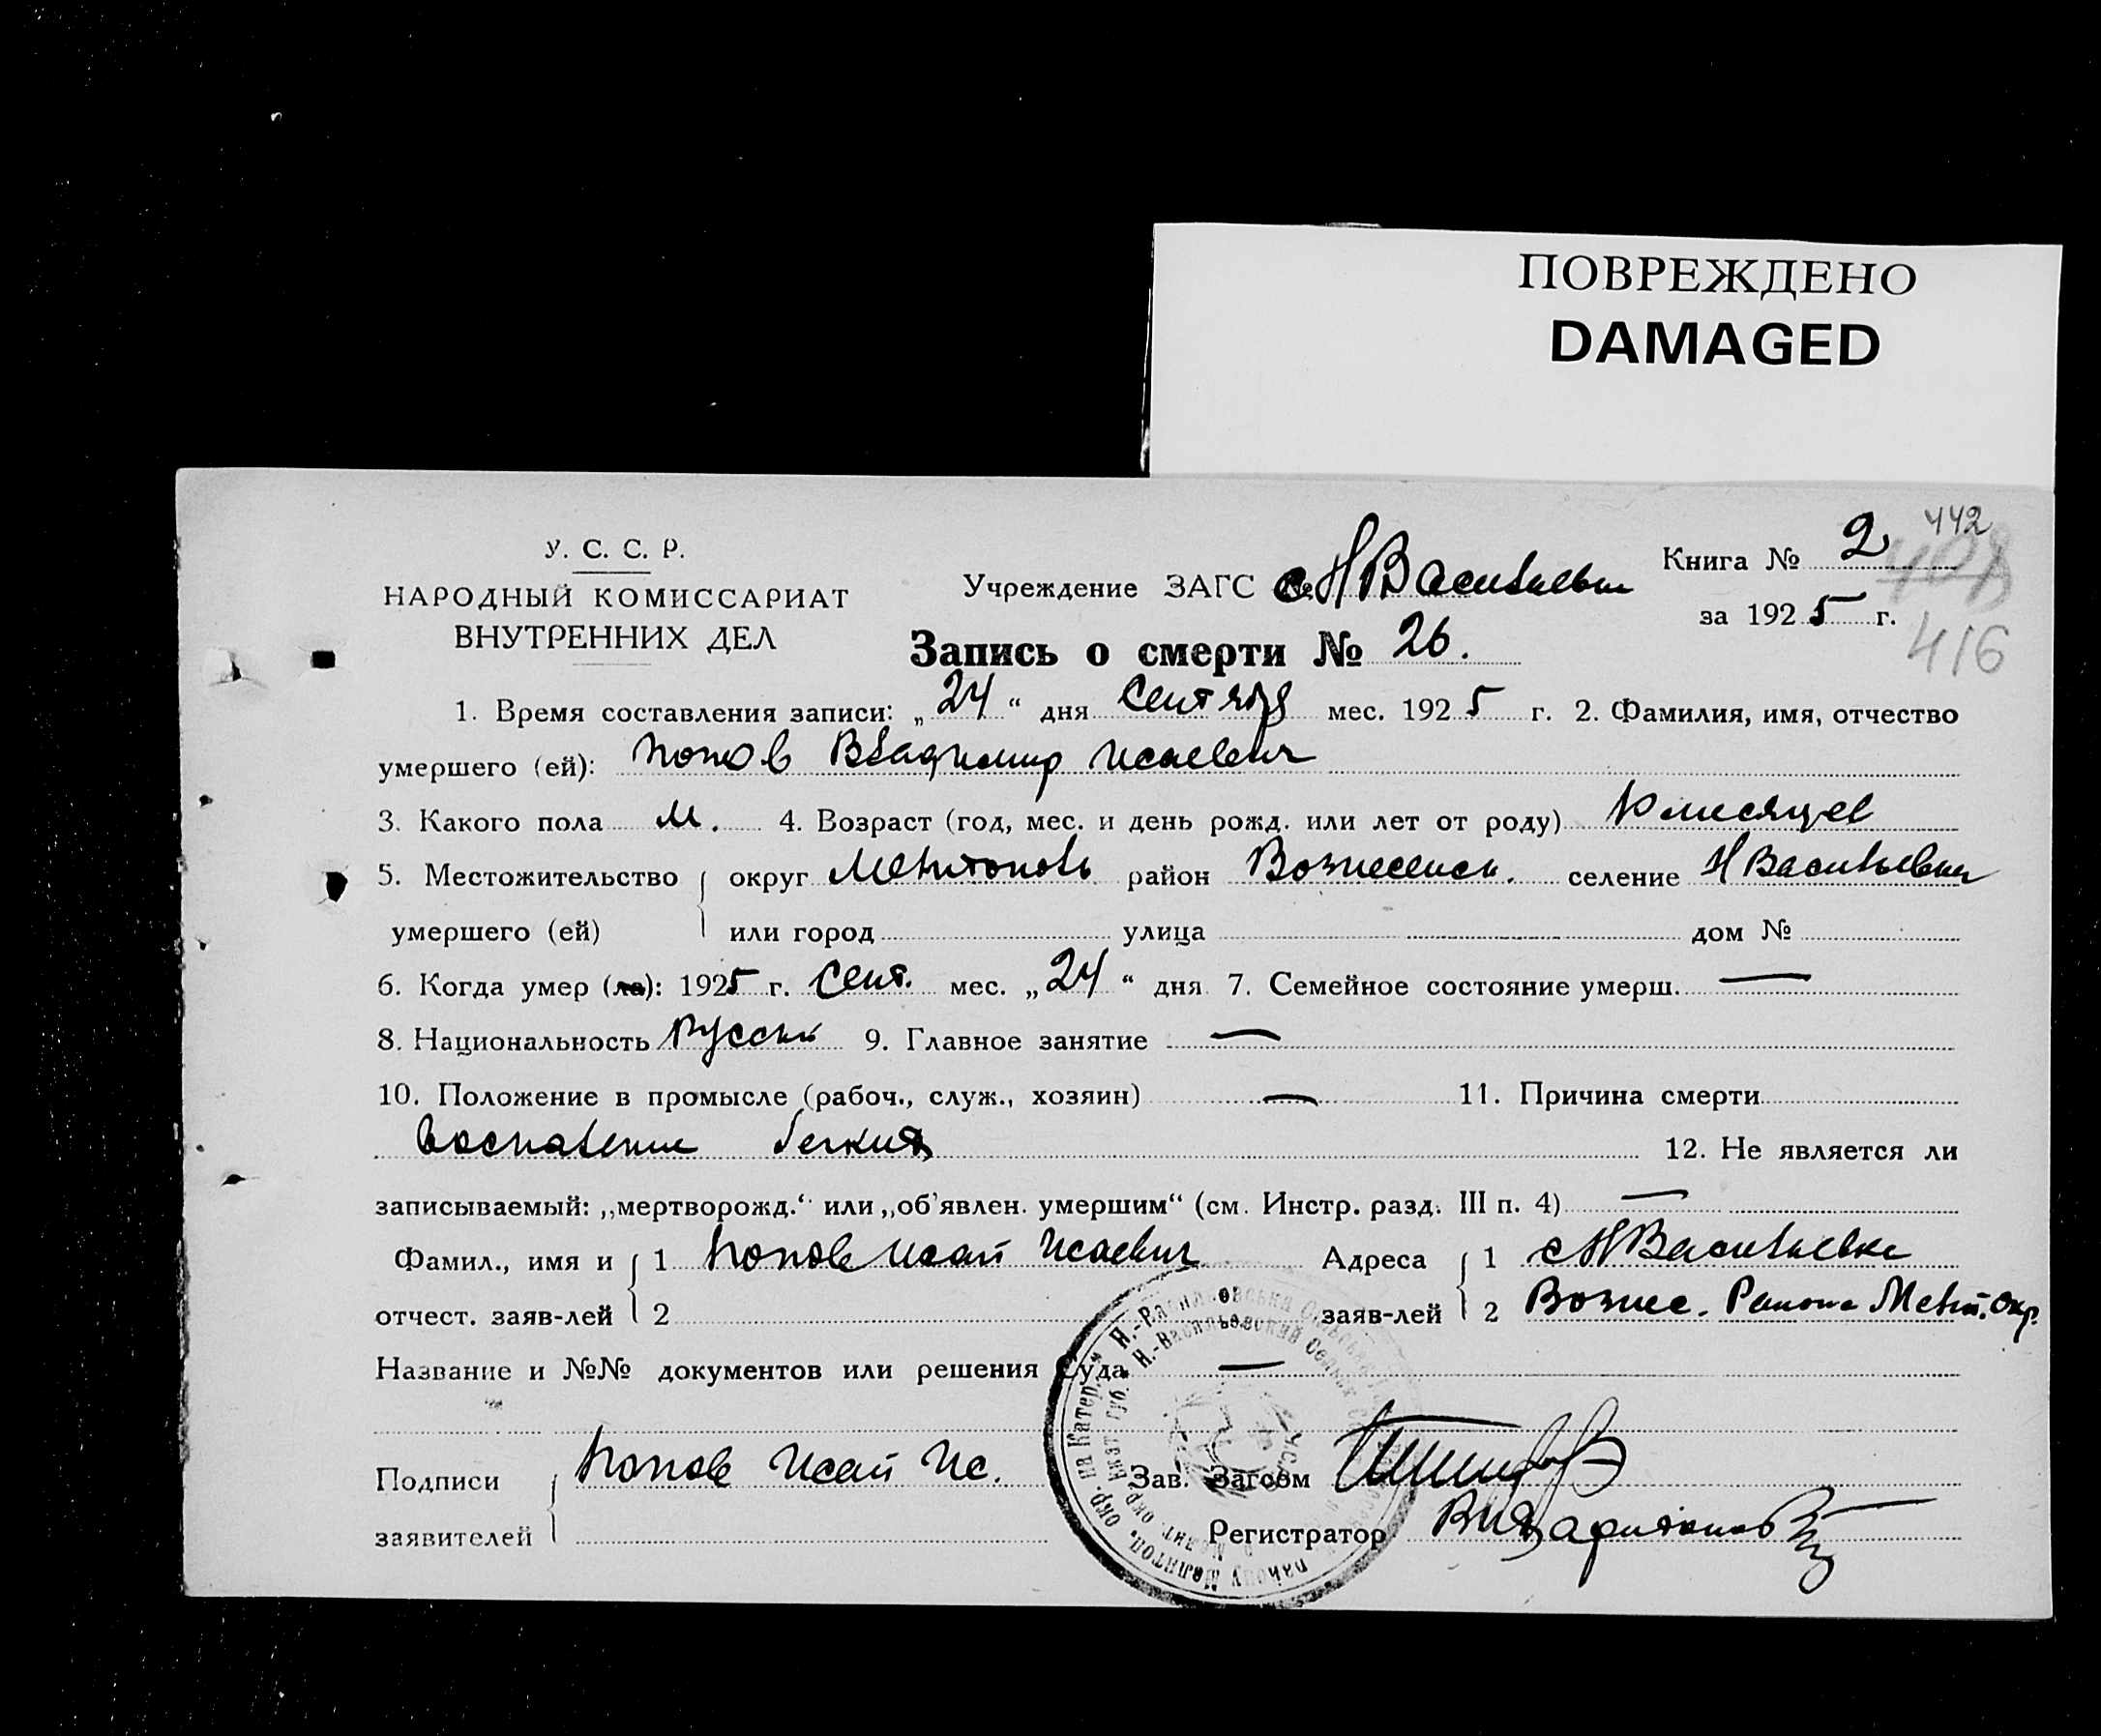 ПОВРЕЖДЕНО
DAMAGED
442
У. С. С. Р.
НАРОДНЫЙ КОМИССАРИАТ
ВНУТРЕННИХ ДЕЛ
Учреждение ЗАГС № с. Н Васильевки
Книга № 2
за 1925 г.
416
Запись о смерти № 26.
1. Время составления записи: „24“ дня Сентября мес. 1925 г. 2. Фамилия, имя, отчество
умершего (ей): Попов Владимир Исаевич
3. Какого пола М. 4. Возраст (год, мес. и день рожд. или лет от роду) месяцев
5. Местожительство округ Мелитополь район Вознесенск. селение Н Васильевка
умершего (ей) или город улица дом №
6. Когда умер (ла): 1925 г. Сент. мес. „24“ дня 7. Семейное состояние умерш. —
8. Национальность Русский 9. Главное занятие —
10. Положение в промысле (рабоч., служ., хозяин) — 11. Причина смерти
воспаление легких 12. Не является ли
записываемый: „мертворожд.“ или „об'явлен. умершим“ (см. Инстр. разд. III п. 4) —
Фамил., имя и 1 Попов Исай Исаевич Адреса 1 с Н Васильевке
отчест. заяв-лей 2 заяв-лей 2 Вознес. Района Мелит. Окр.
Название и №№ документов или решения Суда —
Подписи Попов Исай Ис. Зав. Загсом
заявителей Регистратор Харитонов